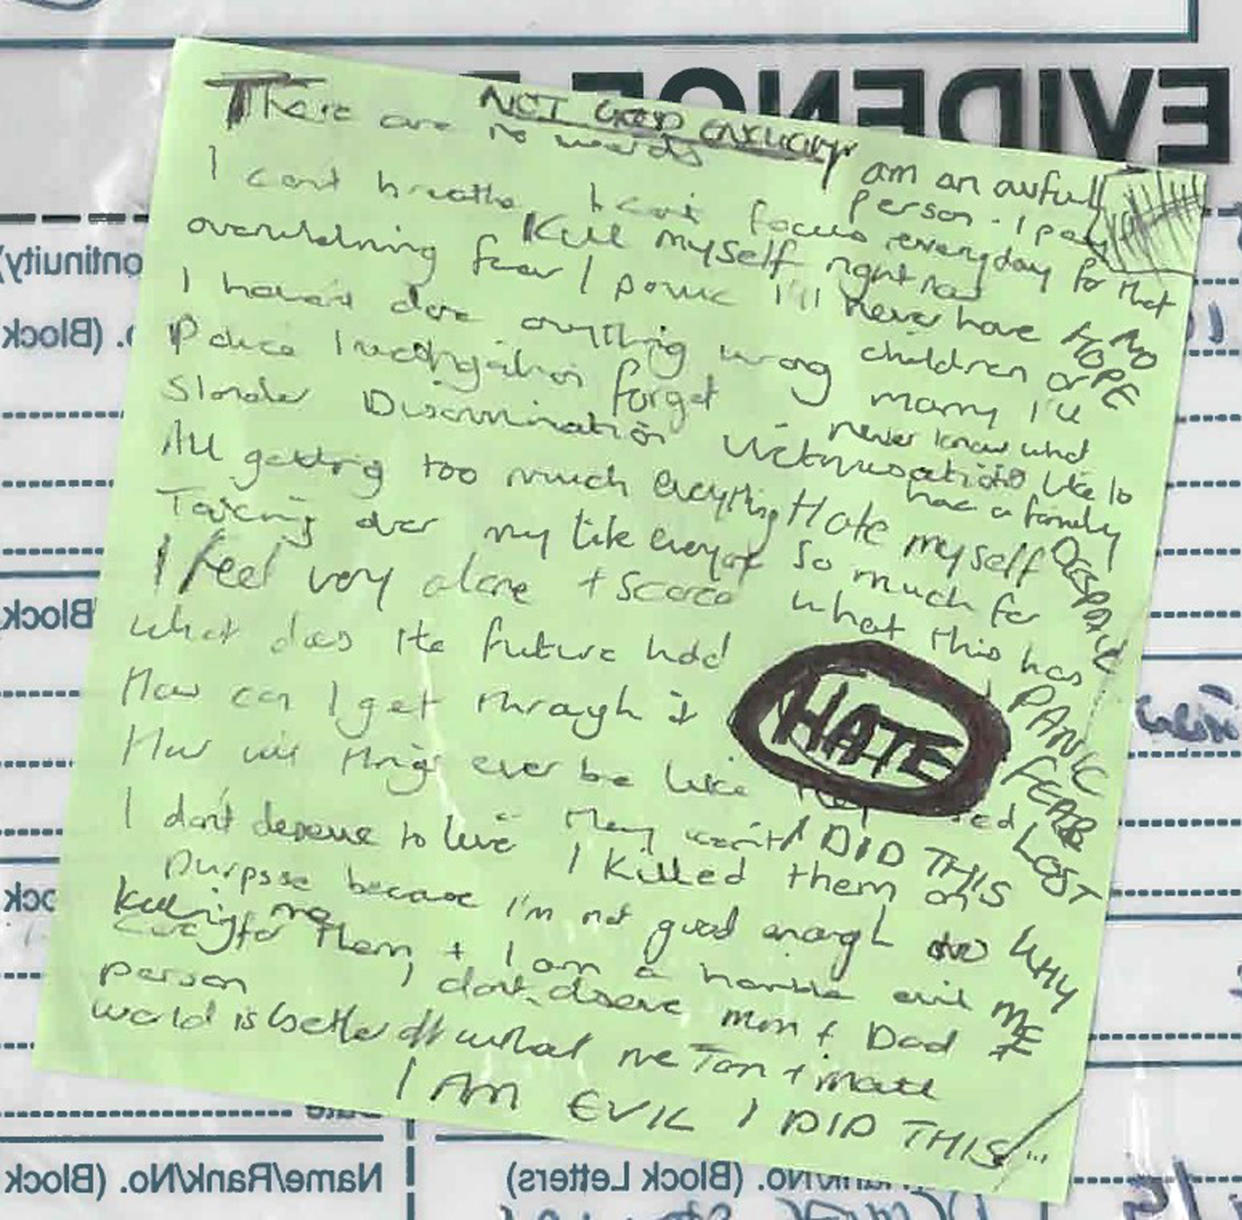 EVIDENCE
NOT GOOD ENOUGH
There are no words
I am an awful
person. I pay
everyday for that
I can't breathe I can't focus
Kill myself right now
overwhelming fear / panic I'll never have
NO
HOPE
I haven't done anything wrong
children or
marry I'll
Police Investigation forget
never know what
Slander Discrimination Victimisation
its like to
have a family
All getting too much everything
Hate myself
so much for
what this has
DESPAIR
Taking over my life everyone
I feel very alone + scared
what does the future hold
PANIC
How can I get through it
HATE
FEAR
How will things ever be like
LOST
I don't deserve to live They won't
I DID THIS
I killed them on
purpose because I'm not good enough to
WHY
ME
care for them + I am a horrible evil
killing me
person
I don't deserve mum + Dad
world is better off without me Tom + Matt
I AM EVIL I DID THIS...
Date
Name/Rank/No. (Block
(Block Letters)